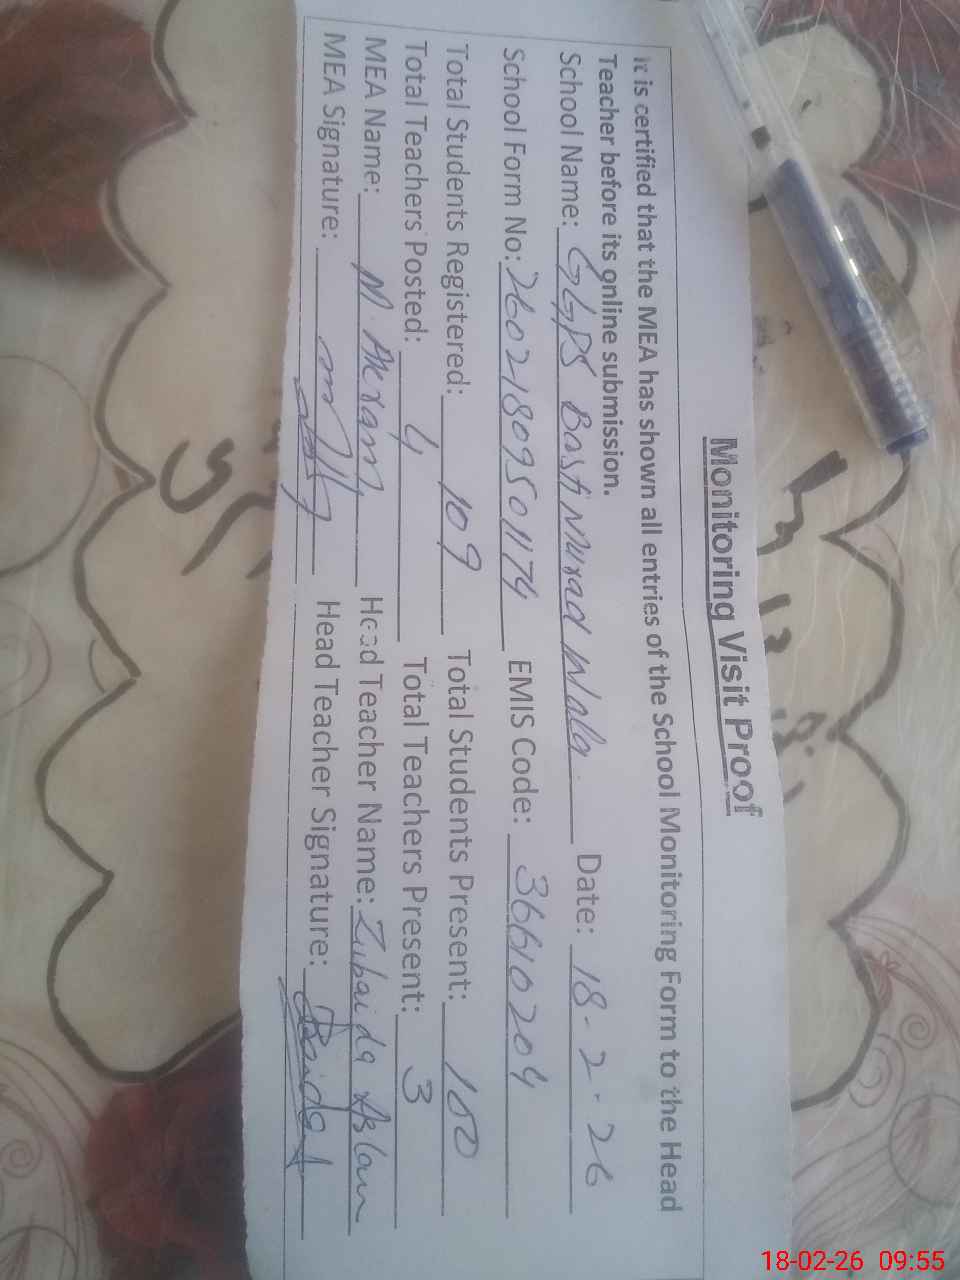 Monitoring Visit Proof
It is certified that the MEA has shown all entries of the School Monitoring Form to the Head
Teacher before its online submission.
School Name: GGPS Basti Murad Wala Date: 18-2-26
School Form No: 26021809501174 EMIS Code: 36610204
Total Students Registered: 109 Total Students Present: 100
Total Teachers Posted: 4 Total Teachers Present: 3
MEA Name: M. Akram Head Teacher Name: Zubaida Aslam
MEA Signature: Head Teacher Signature:
18-02-26 09:55